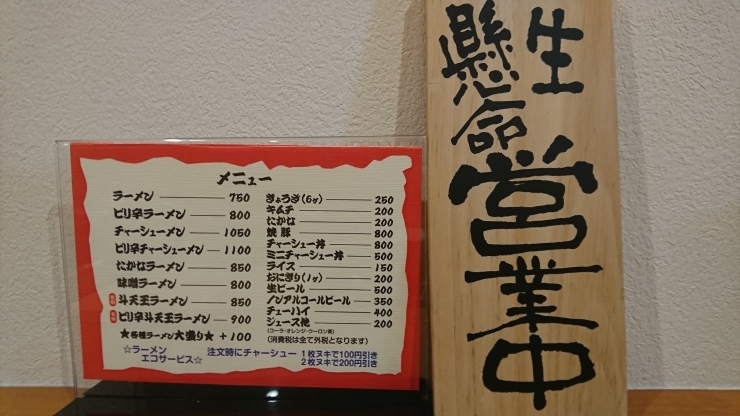 メニュー
ラーメン 750
ピリ辛ラーメン 800
チャーシューメン 1050
ピリ辛チャーシューメン 1100
たかなラーメン 850
味噌ラーメン 800
斗天王ラーメン 850
ピリ辛斗天王ラーメン 900
★各種ラーメン大盛り★ +100
ぎょうざ(6ヶ) 250
キムチ 200
たかな 200
焼豚 800
チャーシュー丼 800
ミニチャーシュー丼 500
ライス 150
おにぎり(1ヶ) 200
生ビール 500
ノンアルコールビール 350
チューハイ 400
ジュース他 200
(コーラ・オレンジ・ウーロン茶)
(消費税は全て外税となります)
☆ラーメン
エコサービス☆
注文時にチャーシュー
1枚ヌキで100円引き
2枚ヌキで200円引き
生
懸命
営業中